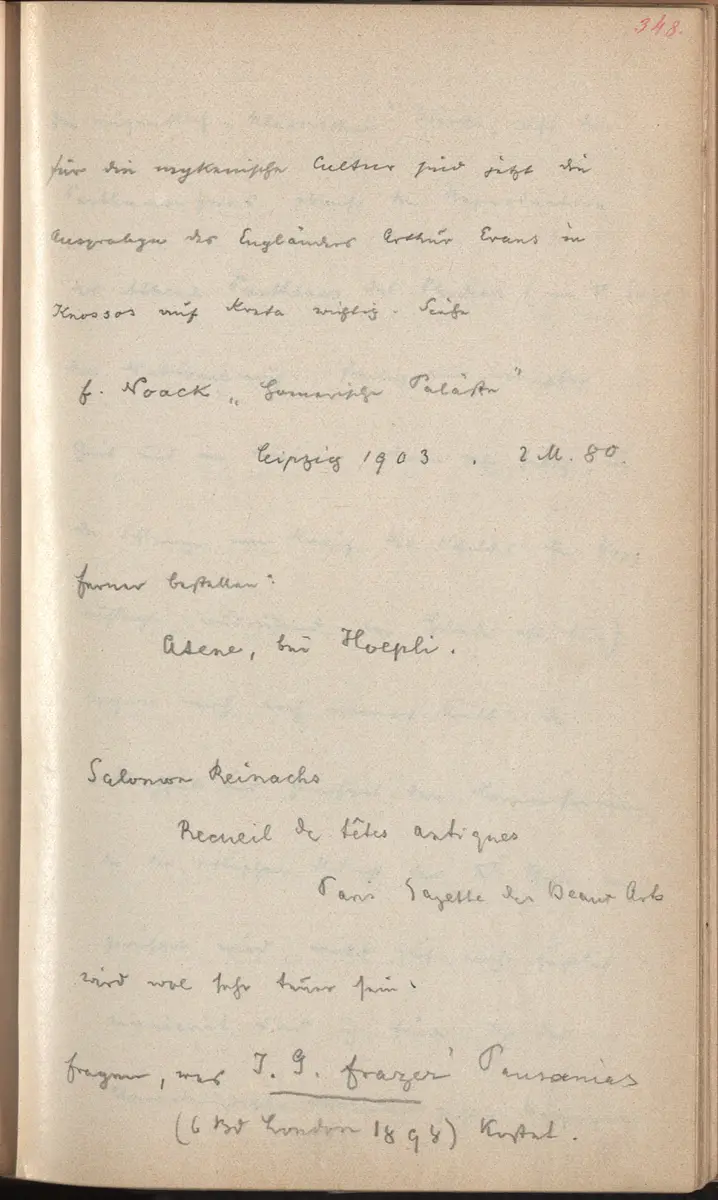 348.
für die mykenische Cultur sind jetzt die
Ausgrabgn des Engländers Arthur Evans in
Knossos auf Kreta wichtig. Siehe
F. Noack „Homerische Paläste"
Leipzig 1903. 2 M. 80.
ferner bestellen:
Atene, bei Hoepli.
Salomon Reinachs
Recueil de têtes antiques
Paris Gazette des Beaux Arts
wird wol sehr teuer sein.
fragen, was J. G. Frazer' Pausanias
(6 Bd London 1898) kostet.